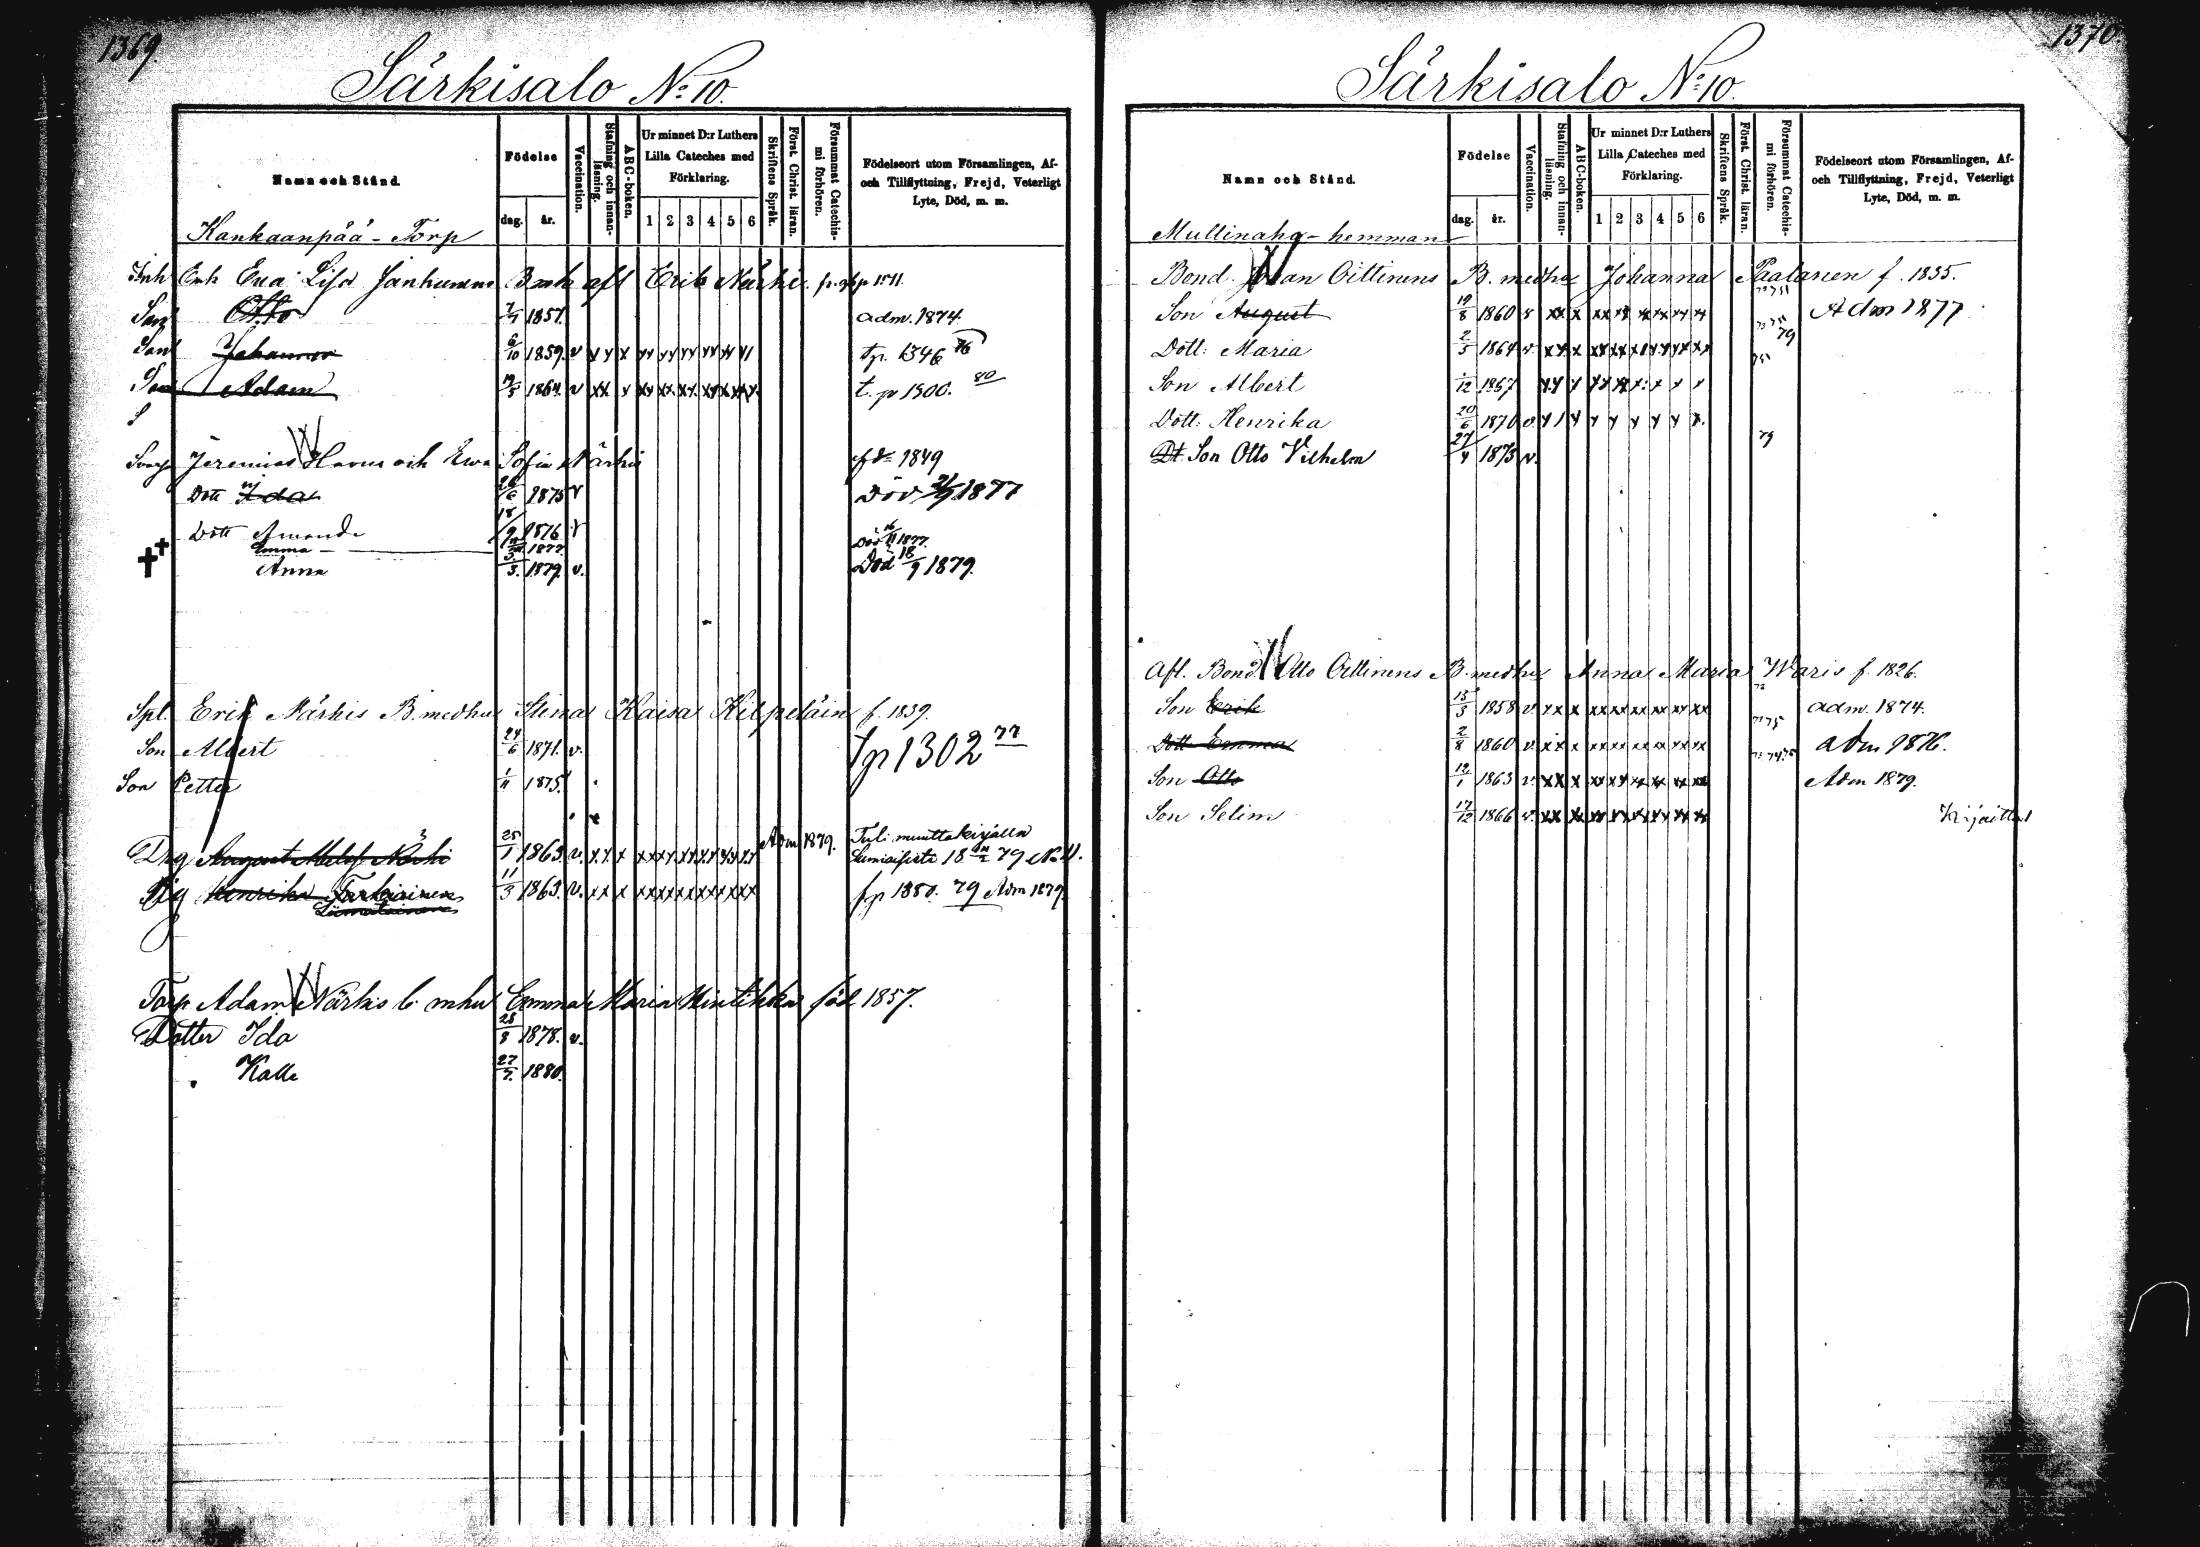 1369.
Särkisalo No 10.
Namn och Stånd.
Födelse
dag. år.
Vaccination.
Stafning och innanläsning.
ABC-boken.
Ur minnet D:r Luthers Lilla Cateches med Förklaring.
1 2 3 4 5 6
Skriftens Språk.
Först. Christ. läran.
Försummat Catechismi förhören.
Födelseort utom Församlingen, Af- och Tillflyttning, Frejd, Veterligt Lyte, Död, m. m.
Kankaanpää - Torp
Inh Enk Eva Lisa Janhunens B mh afl Erik Närhi
Son Otto 1857. adm. 1874.
Son Johannes 6/10 1859. v tp. 1346 76
Son Adam 19/5 1864. v t. p 1300. 80
Jeremias och Eva Sofia Närhi 1849
Dott Ida 1875 v Död 1877
Dott Amanda 18/9 1876 v Död 1877.
Emma 1877
Anna 1879. v. Död 18/9 1879.
Spl. Erik Närhis B. medhu Stina Kaisa Kilpeläin f. 1839.
Son Albert 24/6 1871. v. fp 1302 77
Son Petter 1/11 1875.
Drg August Närhi 25/1 1863. v. Adm 1879. Tuli muuttokirjalla
79 No 11.
Pig Henrika Tarkiainen 11/3 1863. v. fp 1880. 79 Adm 1879
Torp Adam Närhis b. mhu Emma Maria Hintikka föd 1857.
Dotter Ida 28/8 1878. v.
Kalle 27/7. 1880.
1370.
Särkisalo No 10.
Namn och Stånd.
Födelse
dag. år.
Vaccination.
Stafning och innanläsning.
ABC-boken.
Ur minnet D:r Luthers Lilla Cateches med Förklaring.
1 2 3 4 5 6
Skriftens Språk.
Först. Christ. läran.
Försummat Catechismi förhören.
Födelseort utom Församlingen, Af- och Tillflyttning, Frejd, Veterligt Lyte, Död, m. m.
Mullinaho - hemman
Bond. Johan Oittinens B. medhu Johanna Paalanen f. 1835.
Son August 19/8 1860 v Adm 1877
Dott: Maria 2/5 1864 v. 79
Son Albert 1/12 1867
Dott: Henrika 20/6 1870 v.
Dt. Son Otto Vilhelm 27/4 1873 v. 79
Afl. Bond. Otto Oittinens B. medhu Anna Maria Waris f. 1826.
Son Erik 15/3 1858 v adm. 1874.
Dott Emma 2/8 1860 v. adm 1876.
Son Otto 12/1 1863 v. Adm 1879.
Son Selim 17/12 1866 v.